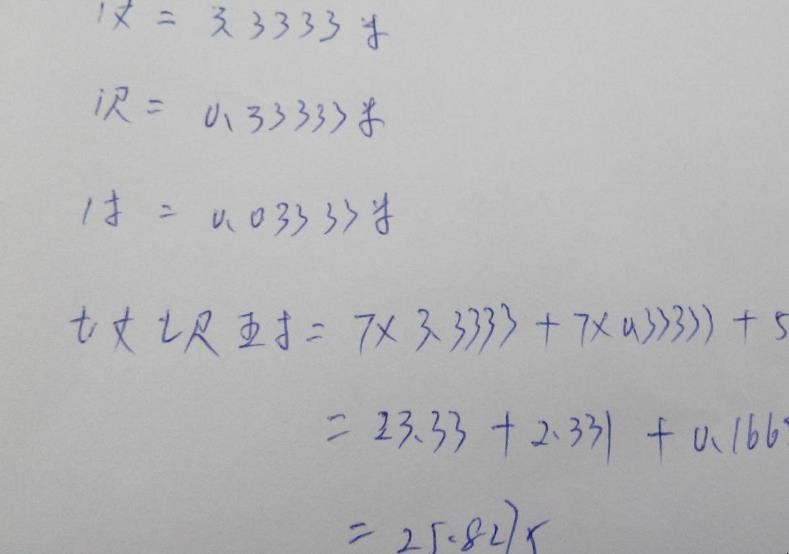 1丈 = 3.3333米
1尺 = 0.33333米
1寸 = 0.03333米
七丈七尺五寸 = 7×3.3333 + 7×0.33333 + 5
= 23.33 + 2.331 + 0.166
= 25.8275